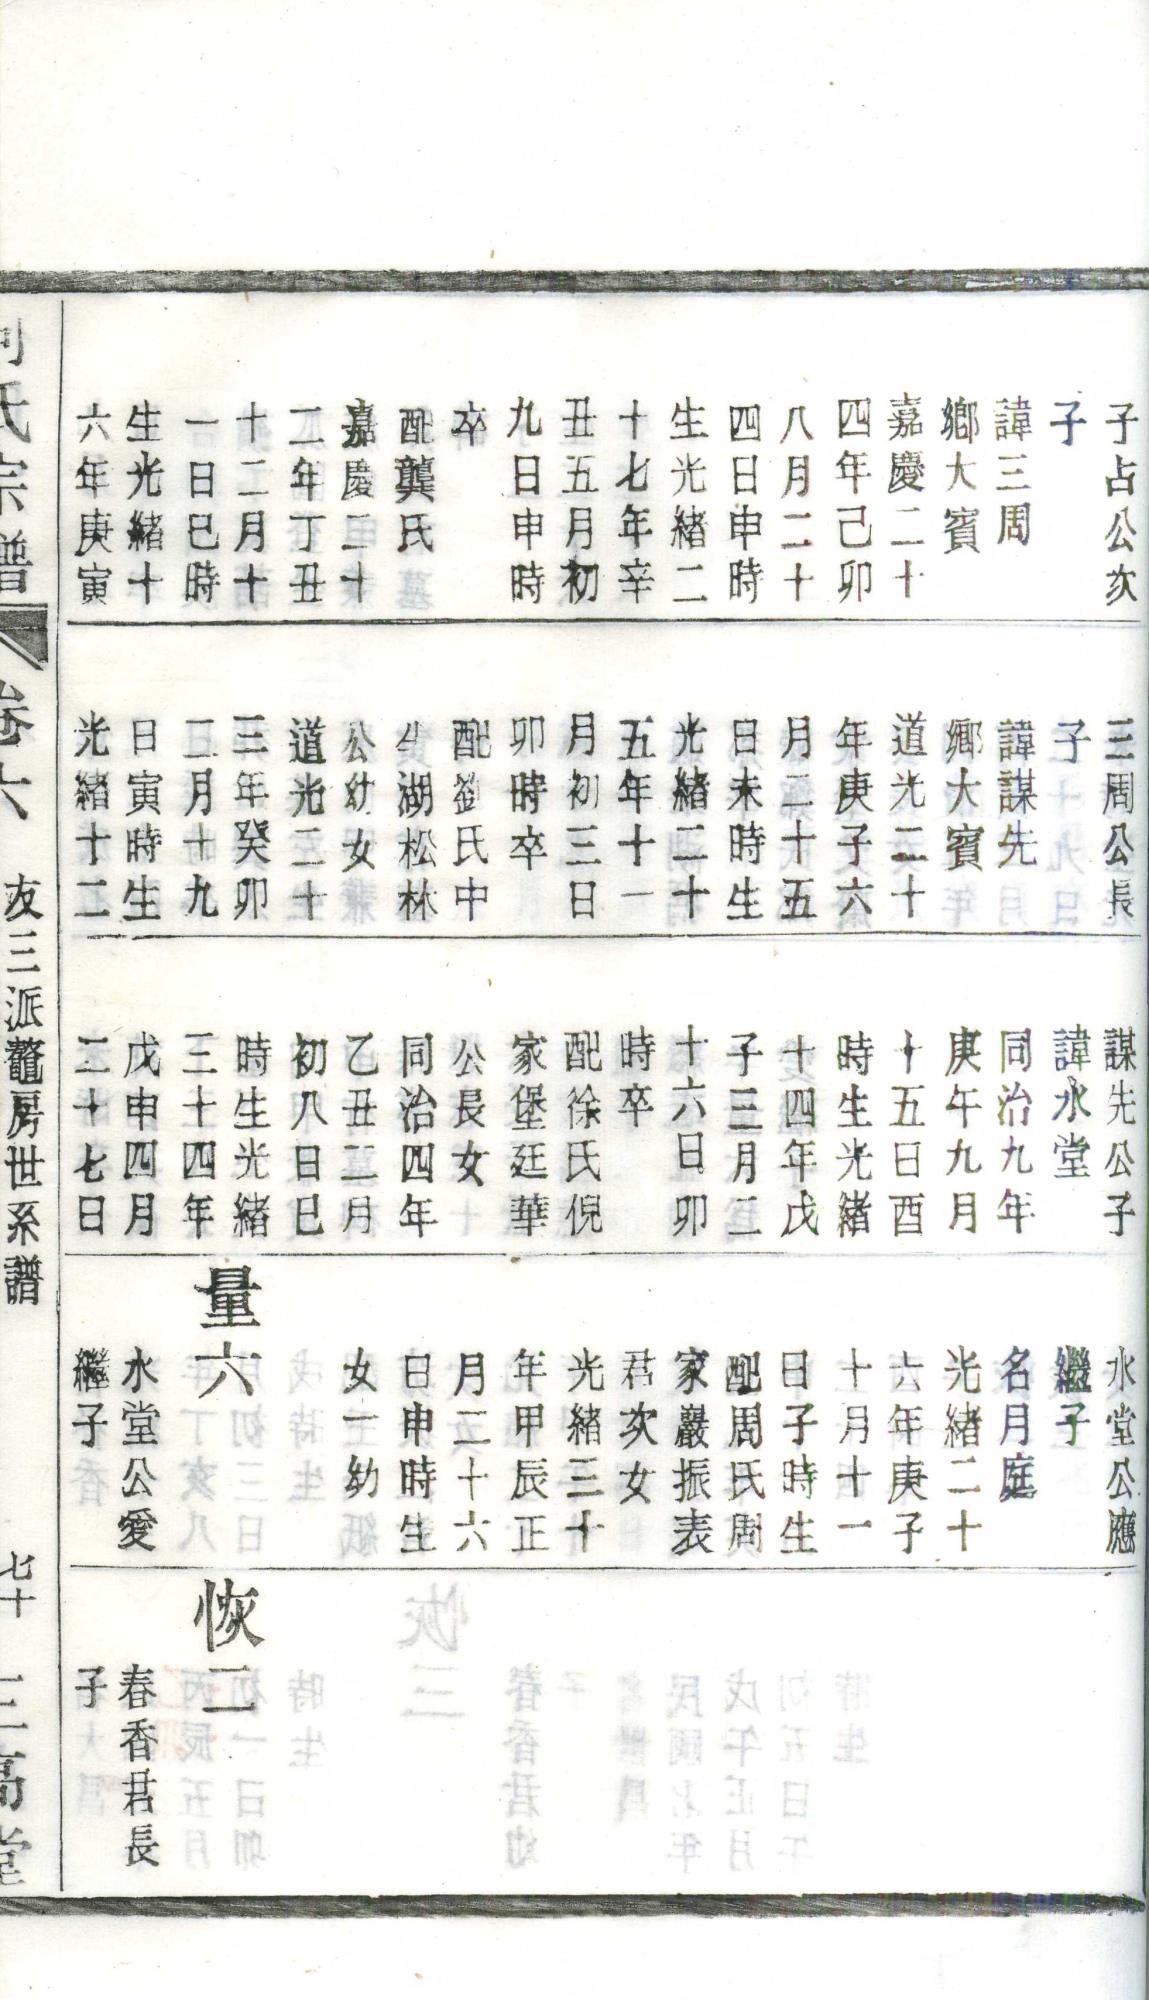 子占公次
子
諱三周
鄉大賓
嘉慶二十
四年己卯
八月二十
四日申時
生光緒二
十七年辛
丑五月初
九日申時
卒
配龔氏
嘉慶二十
二年丁丑
十二月十
一日巳時
生光緒十
六年庚寅
三周公長
子
諱謀先
鄉大賓
道光二十
年庚子六
月二十五
日未時生
光緒二十
五年十一
月初三日
卯時卒
配劉氏中
牛湖松林
公幼女
道光二十
三年癸卯
三月十九
日寅時生
光緒十二
謀先公子
諱永堂
同治九年
庚午九月
十五日酉
時生光緒
十四年戊
子三月二
十六日卯
時卒
配徐氏倪
家堡廷華
公長女
同治四年
乙丑二月
初八日巳
時生光緒
三十四年
戊申四月
二十七日
永堂公應
繼子
名月庭
光緒二十
六年庚子
十月十一
日子時生
配周氏周
家嚴振表
君次女
光緒三十
年甲辰正
月二十六
日申時生
女一幼
量六
永堂公愛
繼子
恢二
春香君長
子
氏宗譜
卷六
友三派鼇房世系譜
七十
三高堂